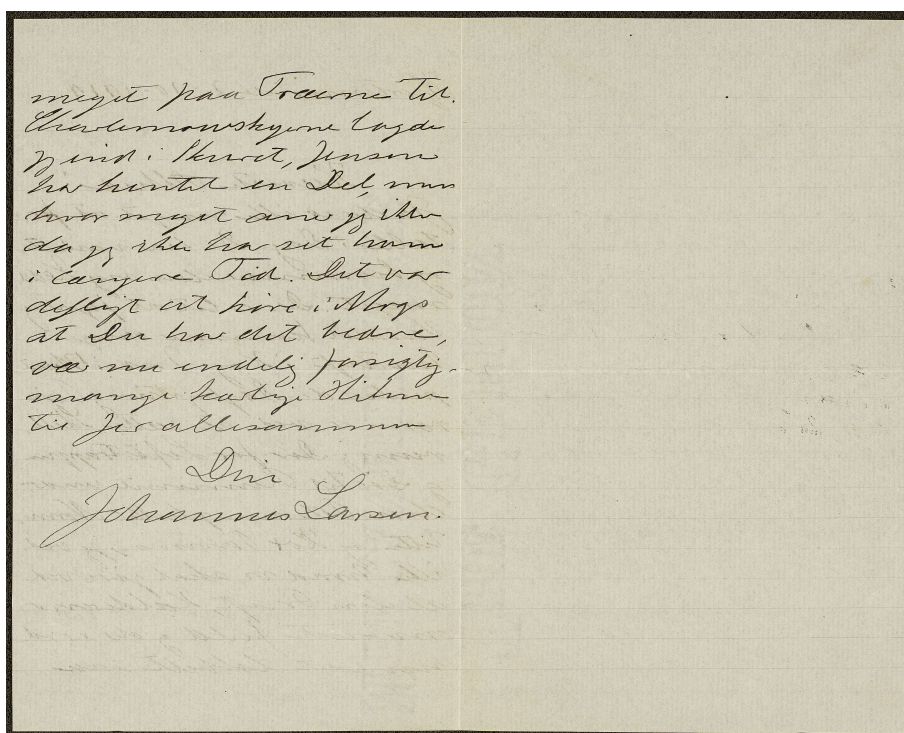 meget paa Træerne til.
Charlemowskyerne lagde
jeg ind i Skuret, Jensen
har hentet en Del, men
hvor meget aner jeg ikke
da jeg ikke har set ham
i længere Tid. Det var
dejligt at høre i Morgs
at Du har det bedre,
vær nu endelig forsigtig.
mange kærlige Hilsner
til Jer allesammen
Din
Johannes Larsen.